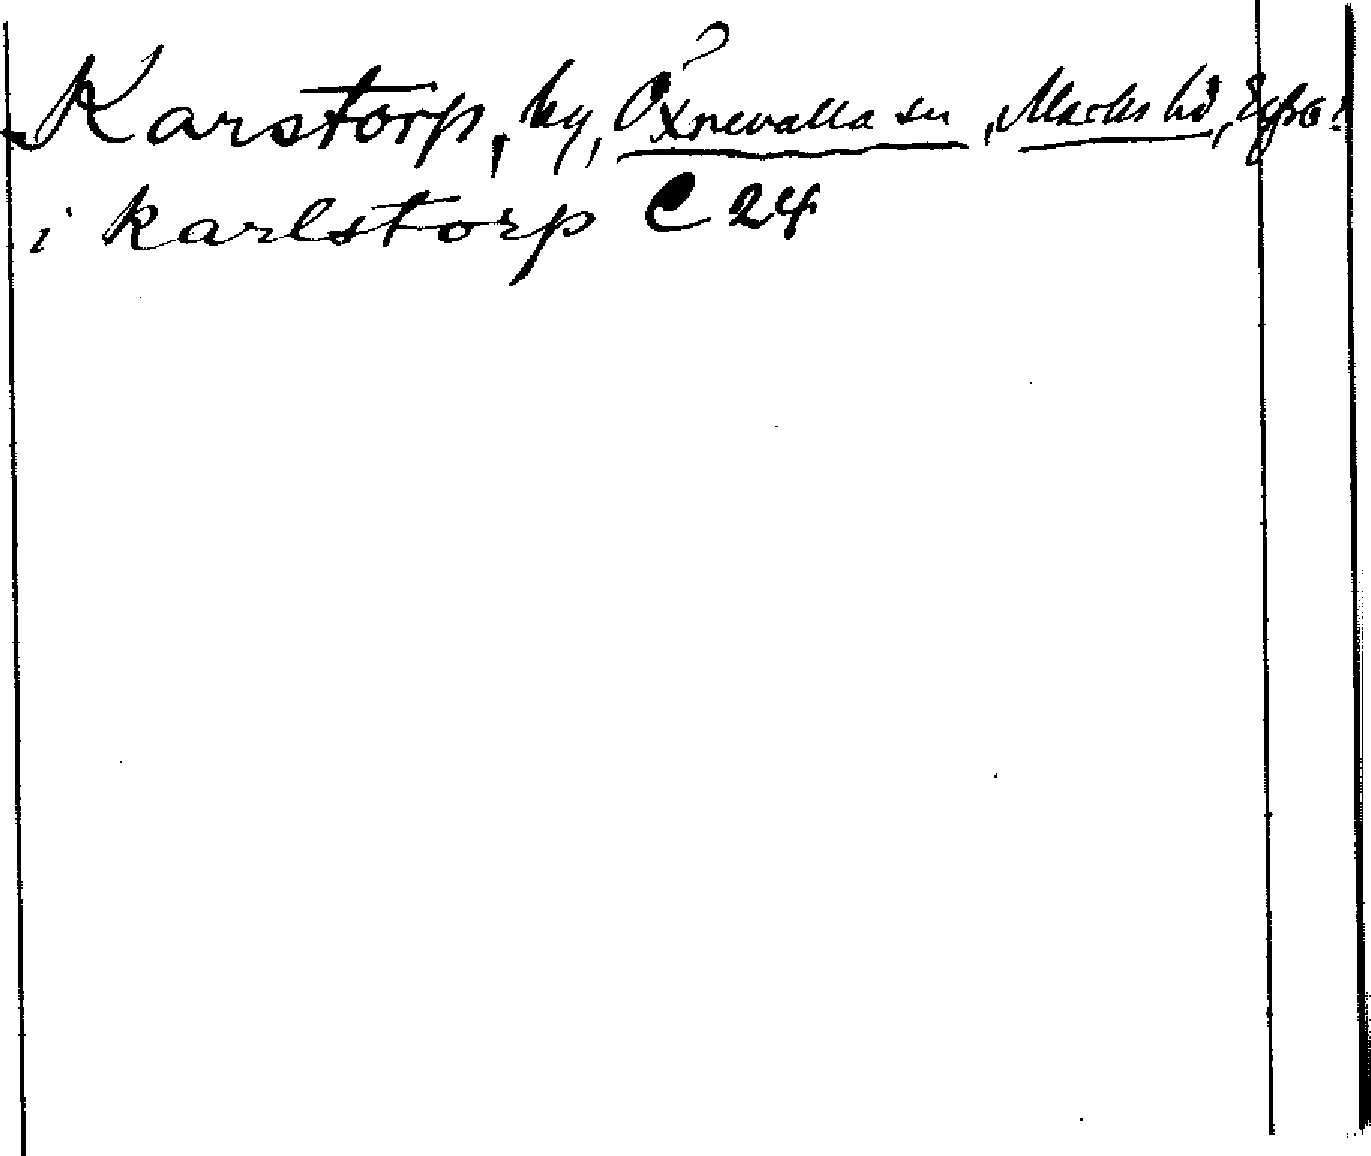 ?
Karstorp, by, Öxnevalla sn, Marks hd, Äfsb.
i karlstorp C 24